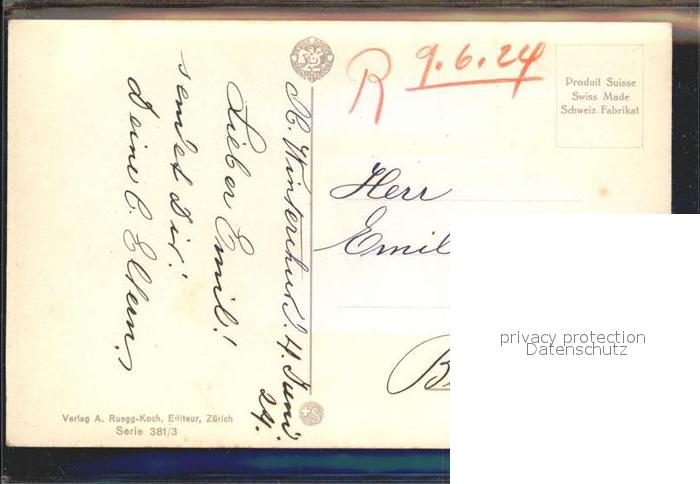 R. Winterthur. 4. Juni.
24.
Lieber Emil!
sendet Dir!
Deine l. Eltern.
R 9.6.24
Produit Suisse
Swiss Made
Schweiz. Fabrikat
Herr
Emil
privacy protection
Datenschutz
Verlag A. Ruegg-Koch, Editeur, Zürich
Serie 381/3